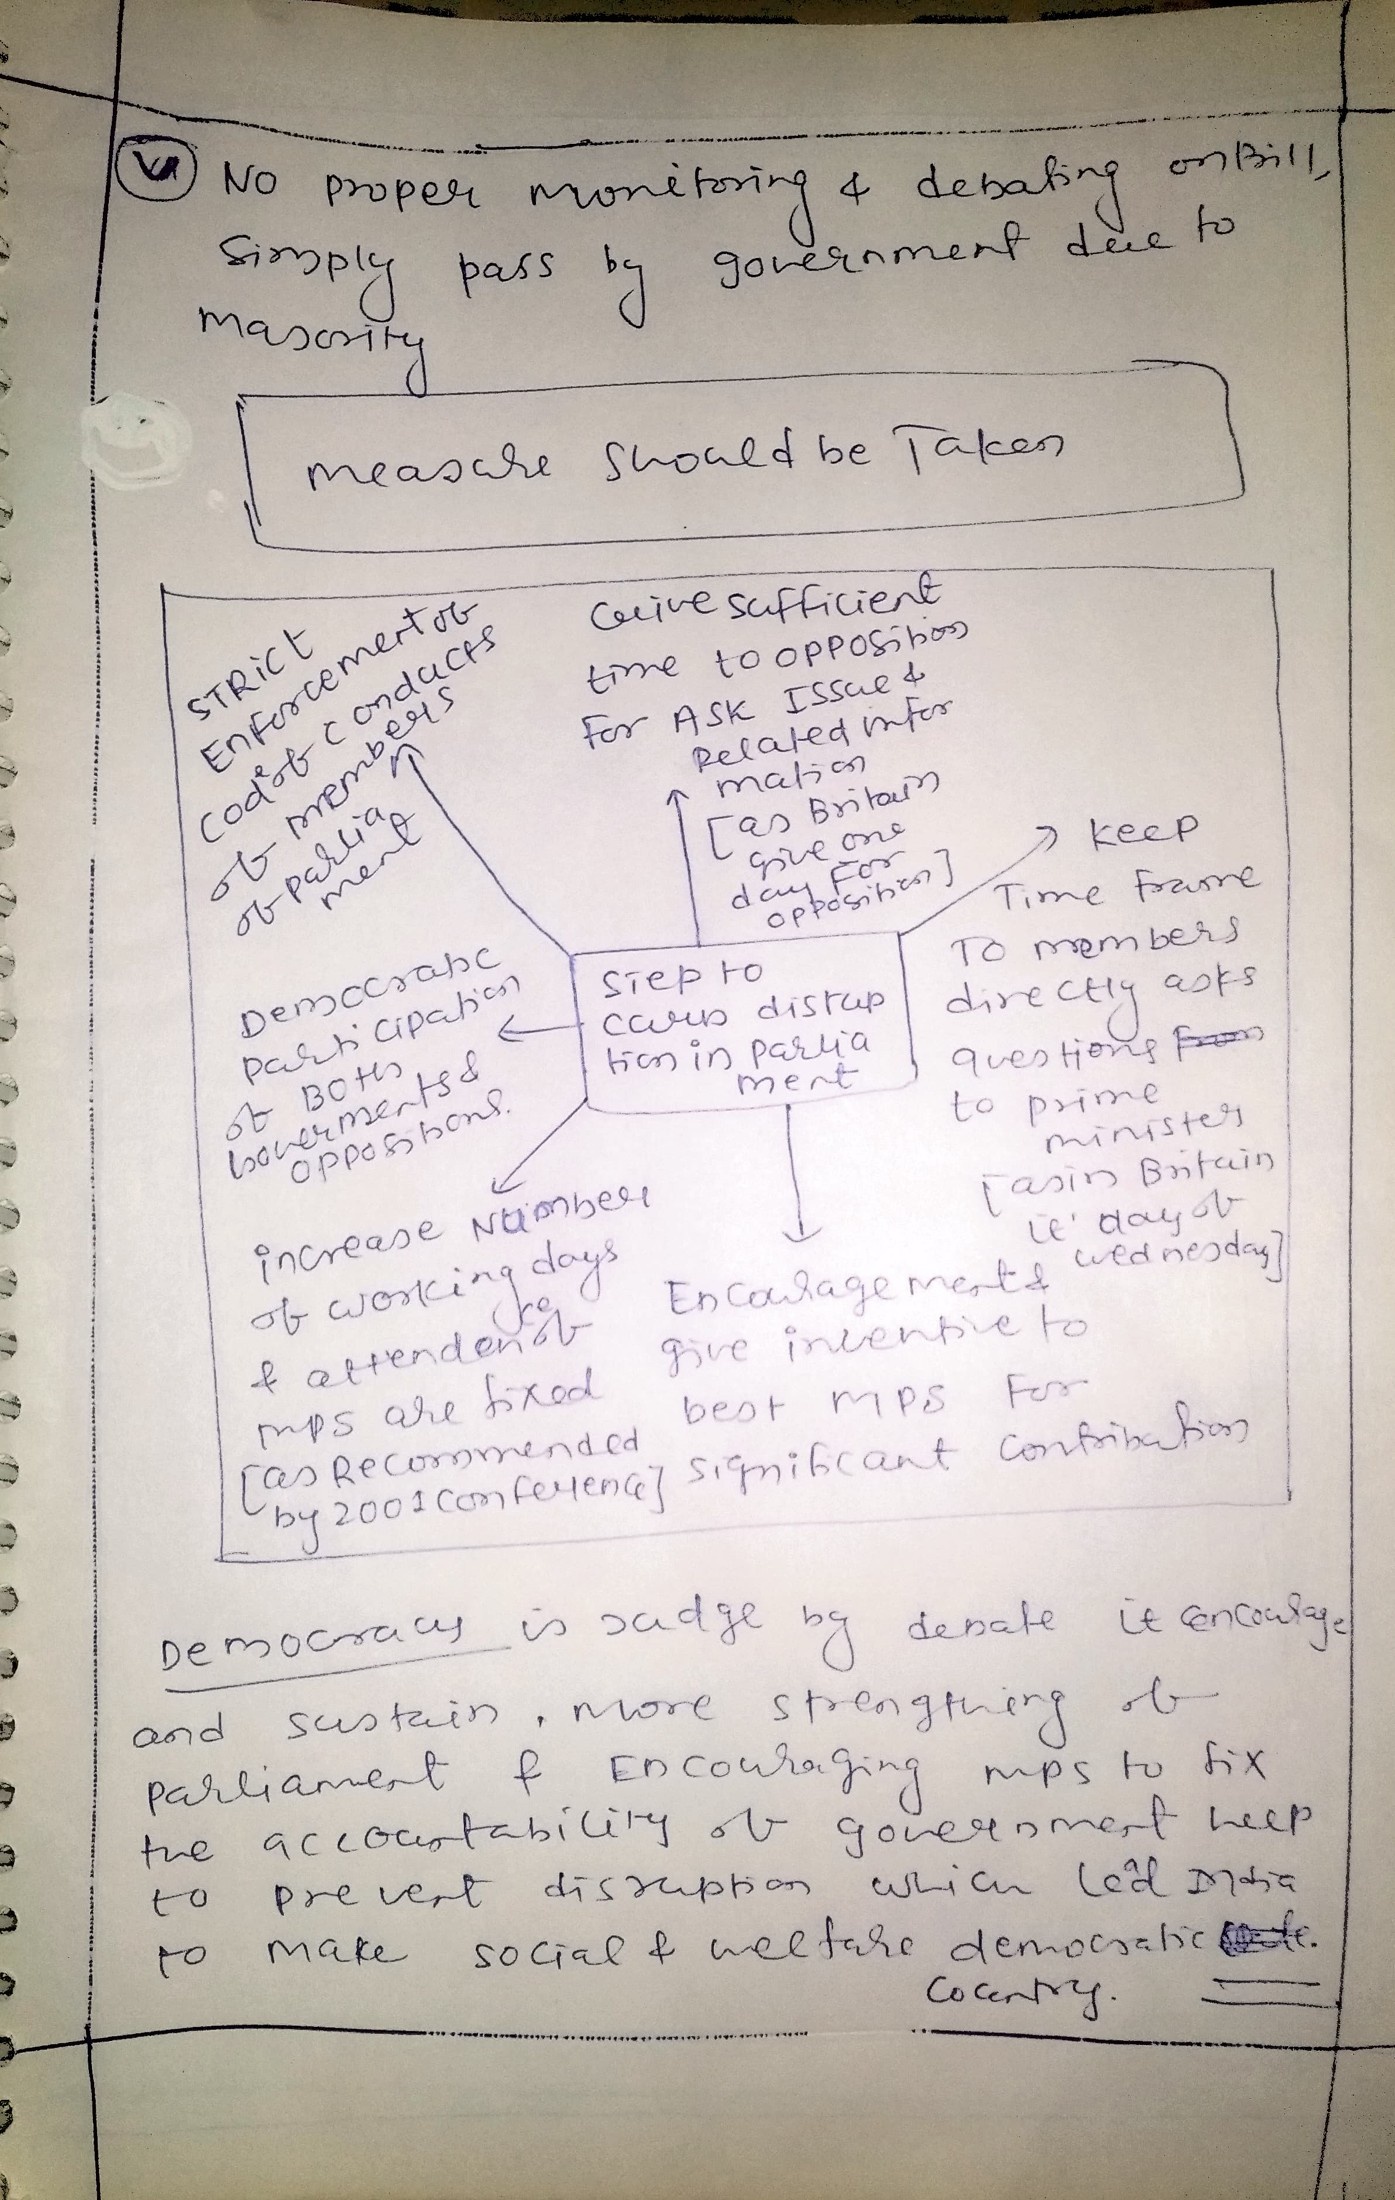 No proper monitoring & debating on Bill,
Simply pass by government due to
majority
measure should be Taken
STRICT
Enforcement of
code of conducts
of members
of parlia
ment
Give sufficient
time to opposition
For Ask Issue &
Related infor
mation
[as Britain
give one
day For
opposition]
keep
Time frame
To members
directly asks
questions
to prime
minister
[as in Britain
it' day of
wednesday]
Step to
curb disrup
tion in parlia
ment
Democratic
participation
of Both
Goverments &
oppositions.
increase Number
of working days
& attendence of
mps are fixed
[as Recommended
by 2001 conference]
Encouragement &
give incentive to
best MPs For
significant contribution
Democracy is judge by debate it encourage
and sustain, more strengthing of
parliament & Encouraging mps to fix
the accountability of government help
to prevent disruption which lead India
to make social & welfare democratic
country.